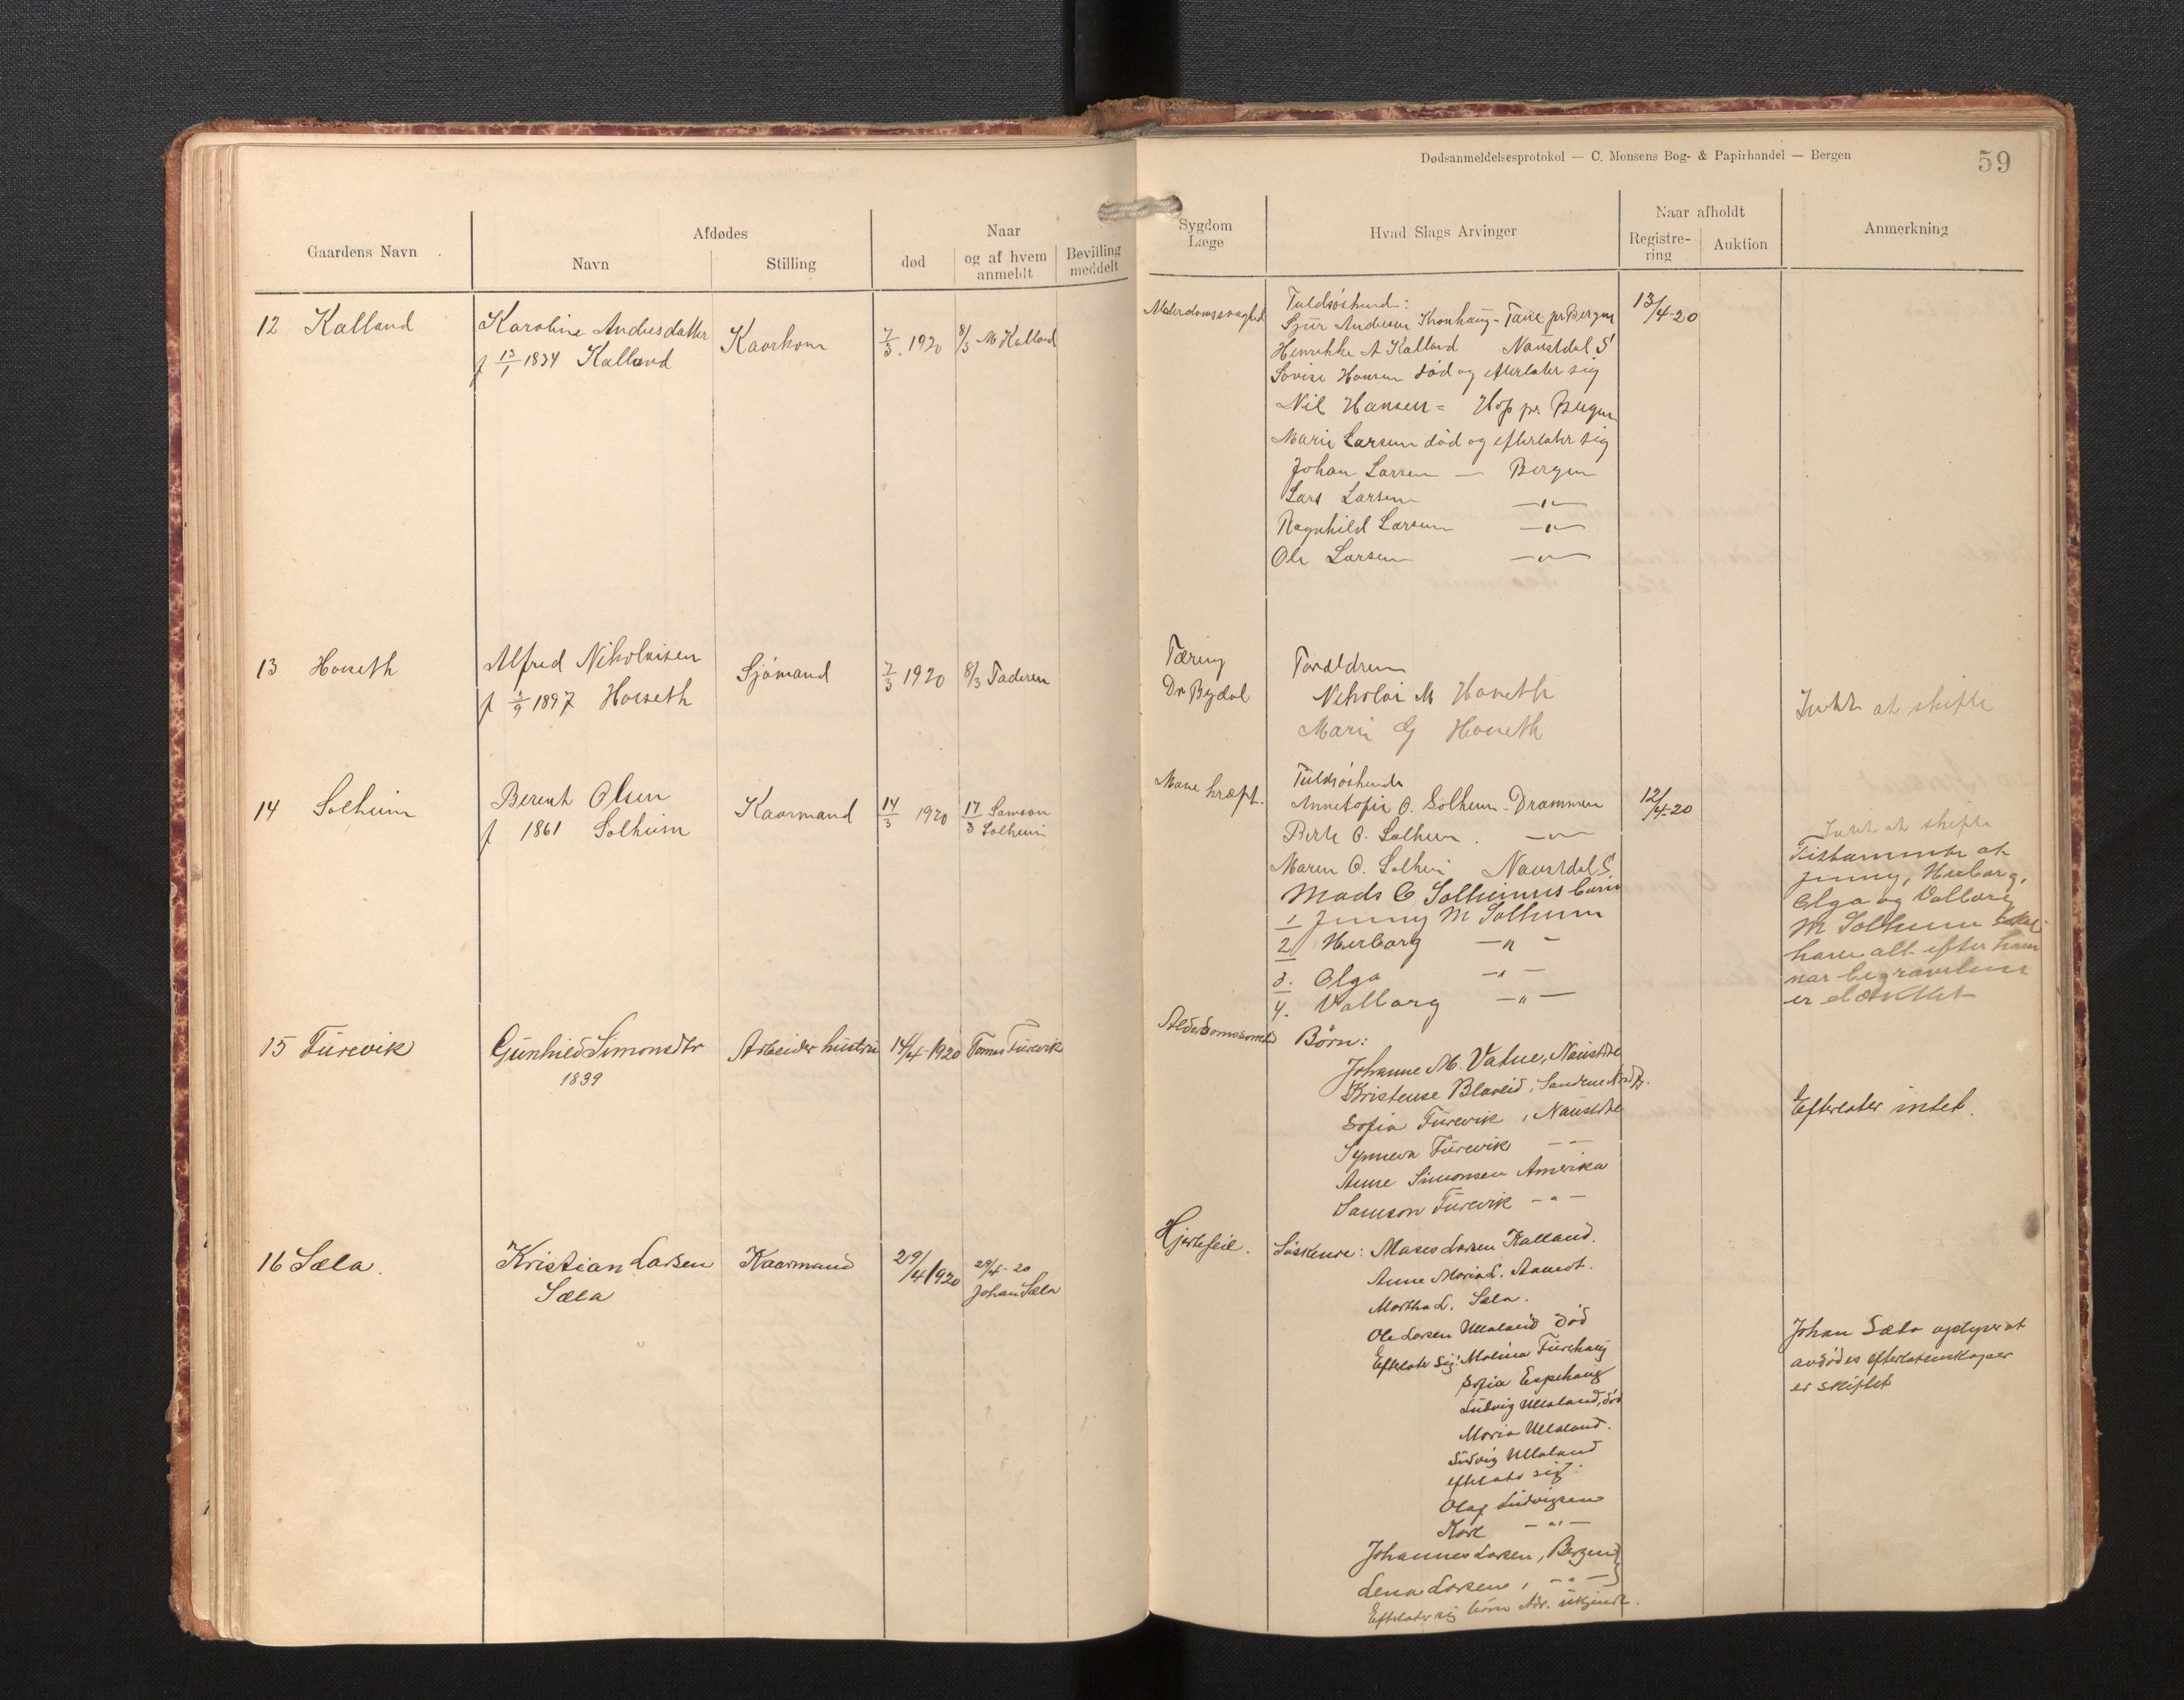 Dødsanmeldelsesprotokol — C. Monsens Bog- & Papirhandel — Bergen
59
Gaardens Navn
Afdødes
Navn
Stilling
Naar
død
og af hvem anmeldt
Bevilling meddelt
Sygdom
Læge
Hvad Slags Arvinger
Naar afholdt
Registre-
ring
Auktion
Anmerkning
12 Kalland
Karoline Andersdatter
f 13/1 1834 Kalland
Kaarkone
7/3. 1920
8/3 M Kalland
Alderdomssvaghed
Fuldsøskend:
Sjur Andersen Kronhaug - Tane pr Bergen
Henrikke A Kalland Naustdal S
Lovise Hansen død og efterlater sig
Nil Hansen = Hop pr. Bergen
Marie Larsen død og efterlater sig
Johan Larsen — Bergen
Lars Larsen —"—
Ragnhild Larsen —"—
Ole Larsen —"—
13/4-20
13 Horseth
Alfred Nikolaisen
f 2/9 1897 Horseth
Sjømand
7/3 1920
8/3 Faderen
Tæring
Dr Bydal
Forældrene
Nikolai M Horseth
Marie G Horseth
Intet at skifte
14 Solheim
Berent Olsen
f 1861 Solheim
Kaarmand
14/3 1920
17/3 Samson
Solheim
Mave kræft.
Fuldsøskende
Annesofie O. Solheim - Drammen
Berte O. Solheim. —"—
Maren O. Solheim Naustdal S
Mads O Solheimns børn
1 Jenny M Solheim
2 Herborg —"—
3. Olga —"—
4. Valborg —"—
12/4-20
Intet at skifte
Tistamente at
Jenny, Herborg,
Olga og Valborg
M Solheim skal
have alt efter ham
naar begravelsen
er dækket
15 Furevik
Gunhild Simonsdtr
1839
Arbeider hustru
14/4-1920
Tomas Furevik
Børn:
Johanne M. Vatne, Naustdal
Kristense Blaaeid, Sandene Nordfj.
Sofia Furevik, Naustdal
Synneva Furevik — —
Anne Simonsen Amerika
Samson Furevik —"—
Efterlater intet.
16 Sæla.
Kristian Larsen
Sæla
Kaarmand
29/4 1920
29/4-20
Johan Sæla
Hjertefeil.
Søskende: Moses Larsen Kalland.
Anne Maria L.
Martha L. Sæla.
Ole Larsen Ullaland død
Efterlater sig: Malina Furehaug
Sofia Espehaug
Ludvig Ullaland, død
Maria Ullaland.
Ludvig Ullaland
efterlater sig:
Olaf Ludvigsen
Kåre —"—
Johannes Larsen, Bergen
Lena Larsen, —"—
Efterlater sig børn Adr. ukjendt.
Johan Sæla oplyser at
avdødes efterlatenskaper
er skiftet